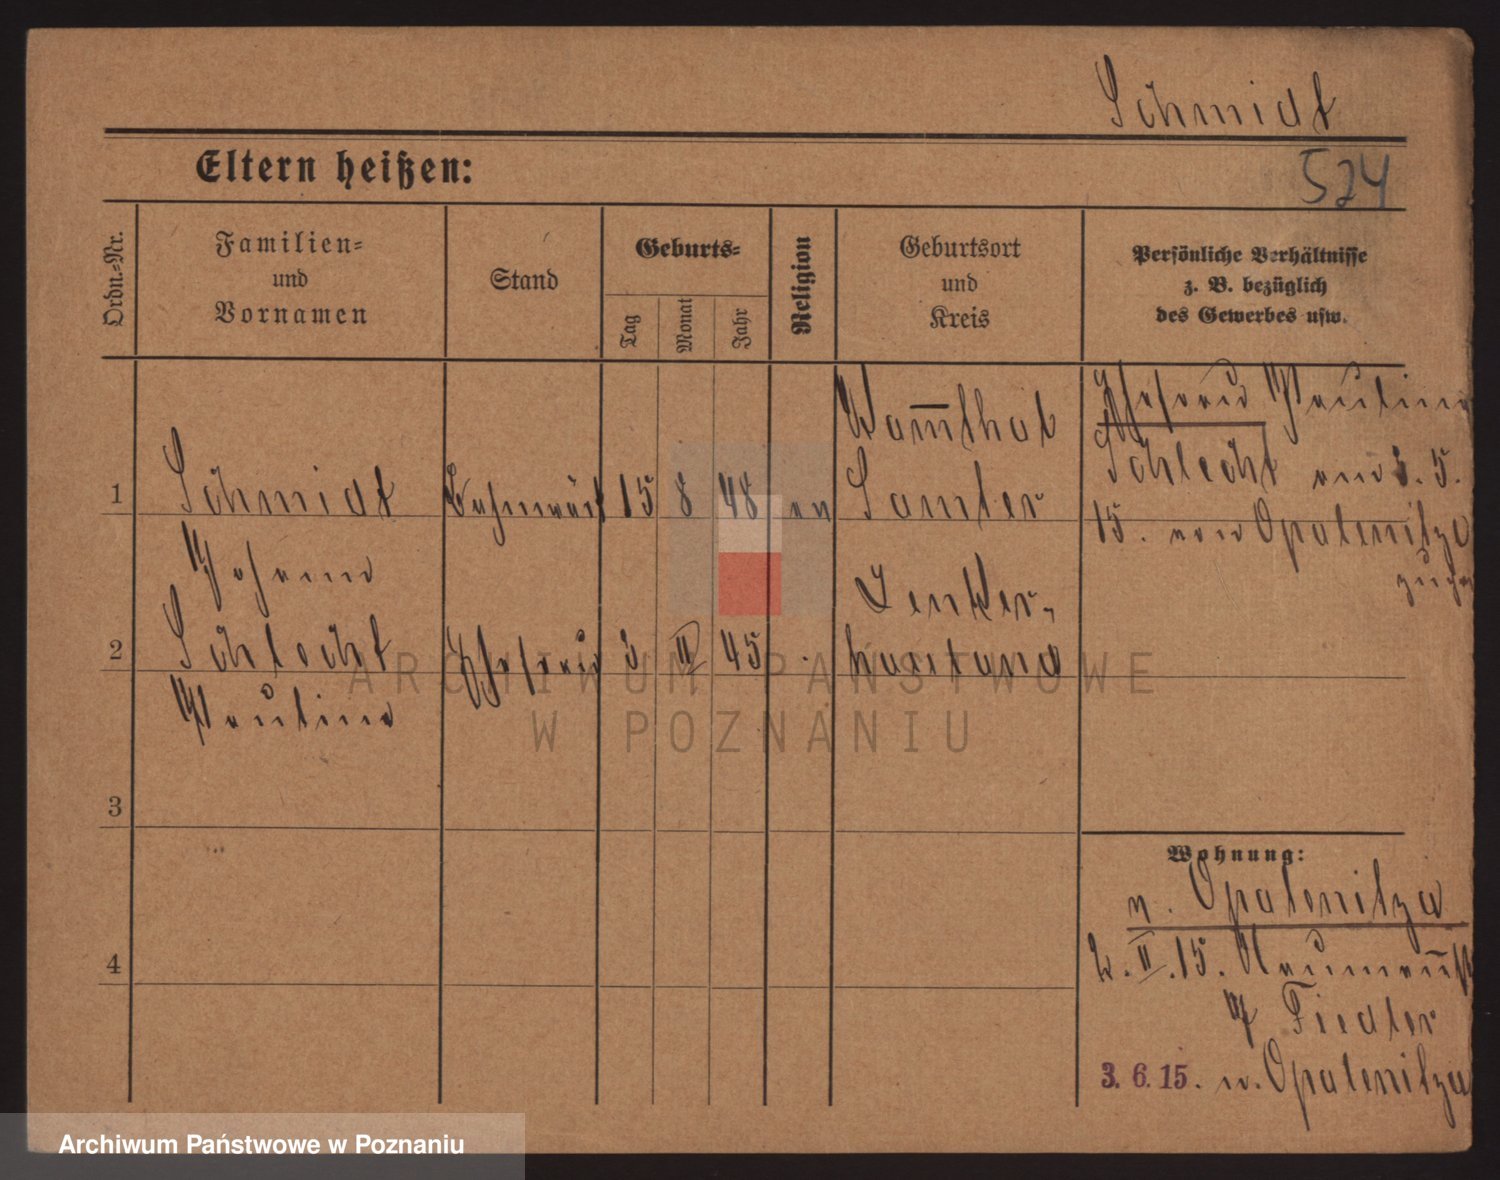 Schmidt
Eltern heißen:
524
Ordn.=Nr.
Familien=
und
Vornamen
Stand
Geburts=
Tag
Monat
Jahr
Religion
Geburtsort
und
Kreis
Persönliche Verhältnisse
z. B. bezüglich
des Gewerbes usw.
1
Schmidt
Johann
Bahnwärt
15
8
48
ev
Samter
Ehefrau Pauline
Schlecht
5.
15. von Opalenitza
2
Schlecht
Pauline
Ehefrau
3
II
45
Lenker-
hauland
3
4
Wohnung:
n. Opalenitza
2. II. 15. Neumannst
7 Fiedler
3. 6. 15. n. Opalenitza
ARCHIWUM PAŃSTWOWE
W POZNANIU
Archiwum Państwowe w Poznaniu